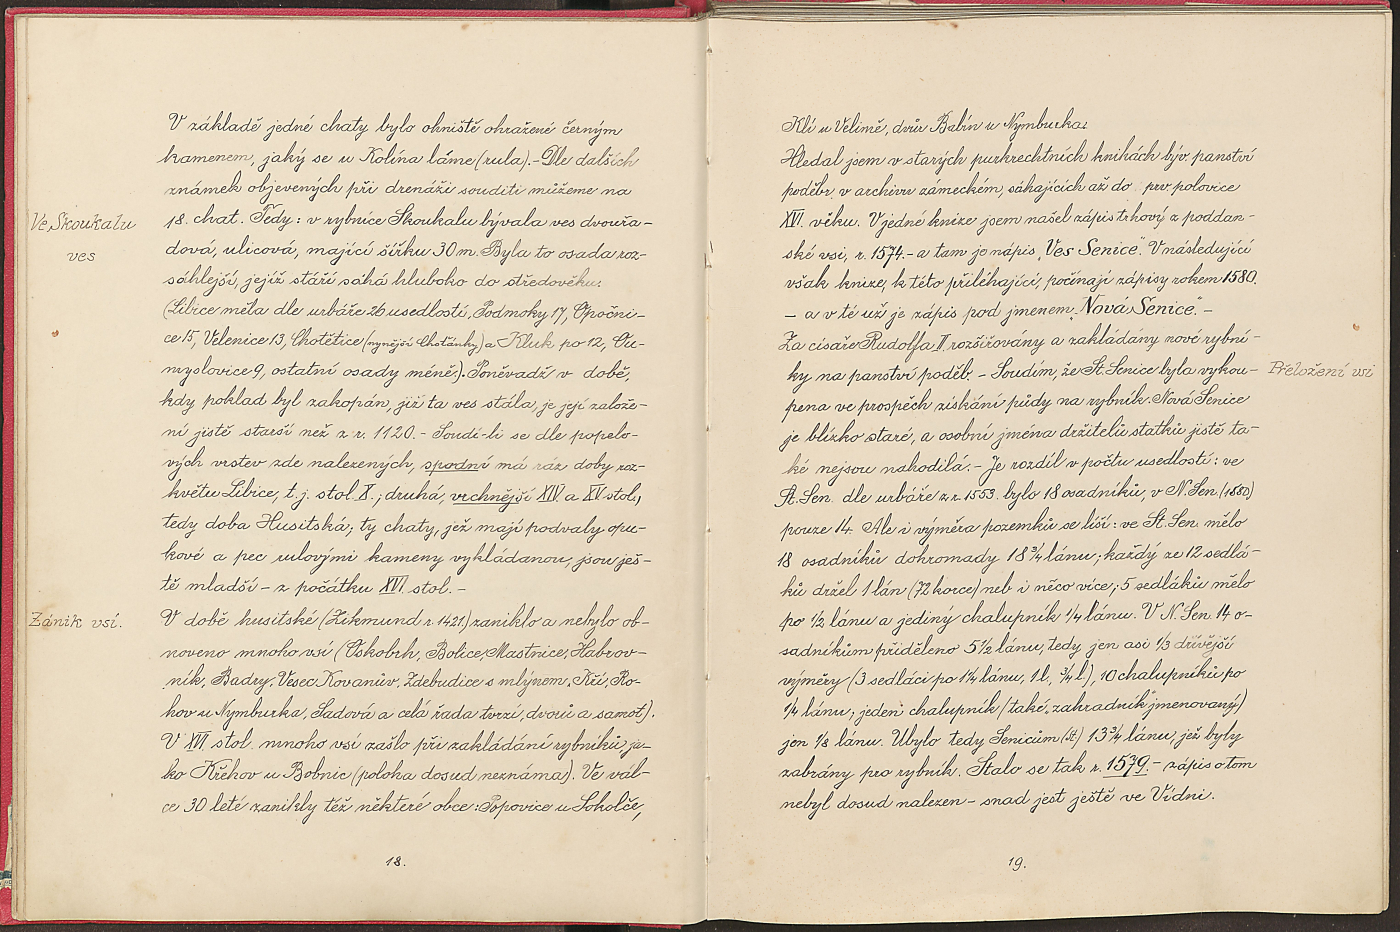 V základě jedné chaty bylo ohniště ohražené černým
kamenem, jaký se u Kolína láme (rula).- Dle dalších
známek objevených při drenáži souditi můžeme na
Ve Skoukalu
ves
18 chat. Tedy: v rybnice Skoukalu bývala ves dvouřa-
dová, ulicová, mající šířku 30 m. Byla to osada roz-
sáhlejší, jejíž stáří sáhá hluboko do středověku.
(Libice měla dle urbáře 26 usedlostí, Podmoky 17, Opočni-
ce 15, Velenice 13, Chotětice (nynější Chotánky) a Kluk po 12, Ou-
myslovice 9, ostatní osady méně). Poněvadž v době,
kdy poklad byl zakopán, již ta ves stála, je její založe-
ní jistě starší než z r. 1120.- Soudí-li se dle popelo-
vých vrstev zde nalezených, spodní má ráz doby roz-
květu Libice, t.j. stol. X.; druhá, vrchnější XIV a XV stol.,
tedy doba Husitská; ty chaty, jež mají podvaly opu-
kové a pec rulovými kameny vykládanou, jsou ješ-
tě mladší – z počátku XVI. stol. –
Zánik vsí.
V době husitské (Zikmund r. 1421) zaniklo a nebylo ob-
noveno mnoho vsí (Oskobrh, Bolice, Mastnice, Habrov-
ník, Badry, Vesec, Kovanův, Zdebudice s mlýnem, Kří, Ro-
hov u Nymburka, Sadová a celá řada tvrzí, dvorů a samot).
V XVI stol. mnoho vsí zašlo při zakládání rybníků ja-
ko Křehov u Bobnic (poloha dosud neznáma). Ve vál-
ce 30 leté zanikly též některé obce: Popovice u Sokolče,
18.
Klí u Velimě, dvůr Babín u Nymburka.
Hledal jsem v starých purkrechtních knihách býv. panství
poděbr. v archivu zámeckém, sáhajících až do prv polovice
XVI. věku. V jedné knize jsem našel zápis trhový z poddan-
ské vsi, r. 1574.- a tam je nápis „Ves Senice". V následující
však knize, k této přiléhající, počínají zápisy rokem 1580.
– a v té už je zápis pod jmenem „Nová Senice." –
Za císaře Rudolfa II rozšiřovány a zakládány nové rybní-
Přeložení vsi
ky na panství poděb. – Soudím, že St. Senice byla vykou-
pena ve prospěch získání půdy na rybník. Nová Senice
je blízko staré, a osobní jména držitelů statků jistě ta-
ké nejsou nahodilá.- Je rozdíl v počtu usedlostí: ve
St. Sen. dle urbáře z r. 1553. bylo 18 osadníků, v N. Sen. (1580)
pouze 14. Ale i výměra pozemků se liší: ve St. Sen. mělo
18 osadníků dohromady 18 3/4 lánu; každý ze 12 sedlá-
ků držel 1 lán (72 korce) neb i něco více; 5 sedláků mělo
po 1/2 lánu a jediný chalupník 1/4 lánu. V N. Sen. 14 o-
sadníkům přiděleno 5 1/2 lánu, tedy jen asi 1/3 dřívější
výměry (3 sedláci po 1 1/4 lánu, 1 l., 3/4 l), 10 chalupníků po
1/4 lánu; jeden chalupník (také „zahradník" jmenovaný)
jen 1/8 lánu. Ubylo tedy Senicům (St.) 13 3/4 lánu, jež byly
zabrány pro rybník. Stalo se tak r. 1579.- zápis o tom
nebyl dosud nalezen – snad jest ještě ve Vídni.
19.